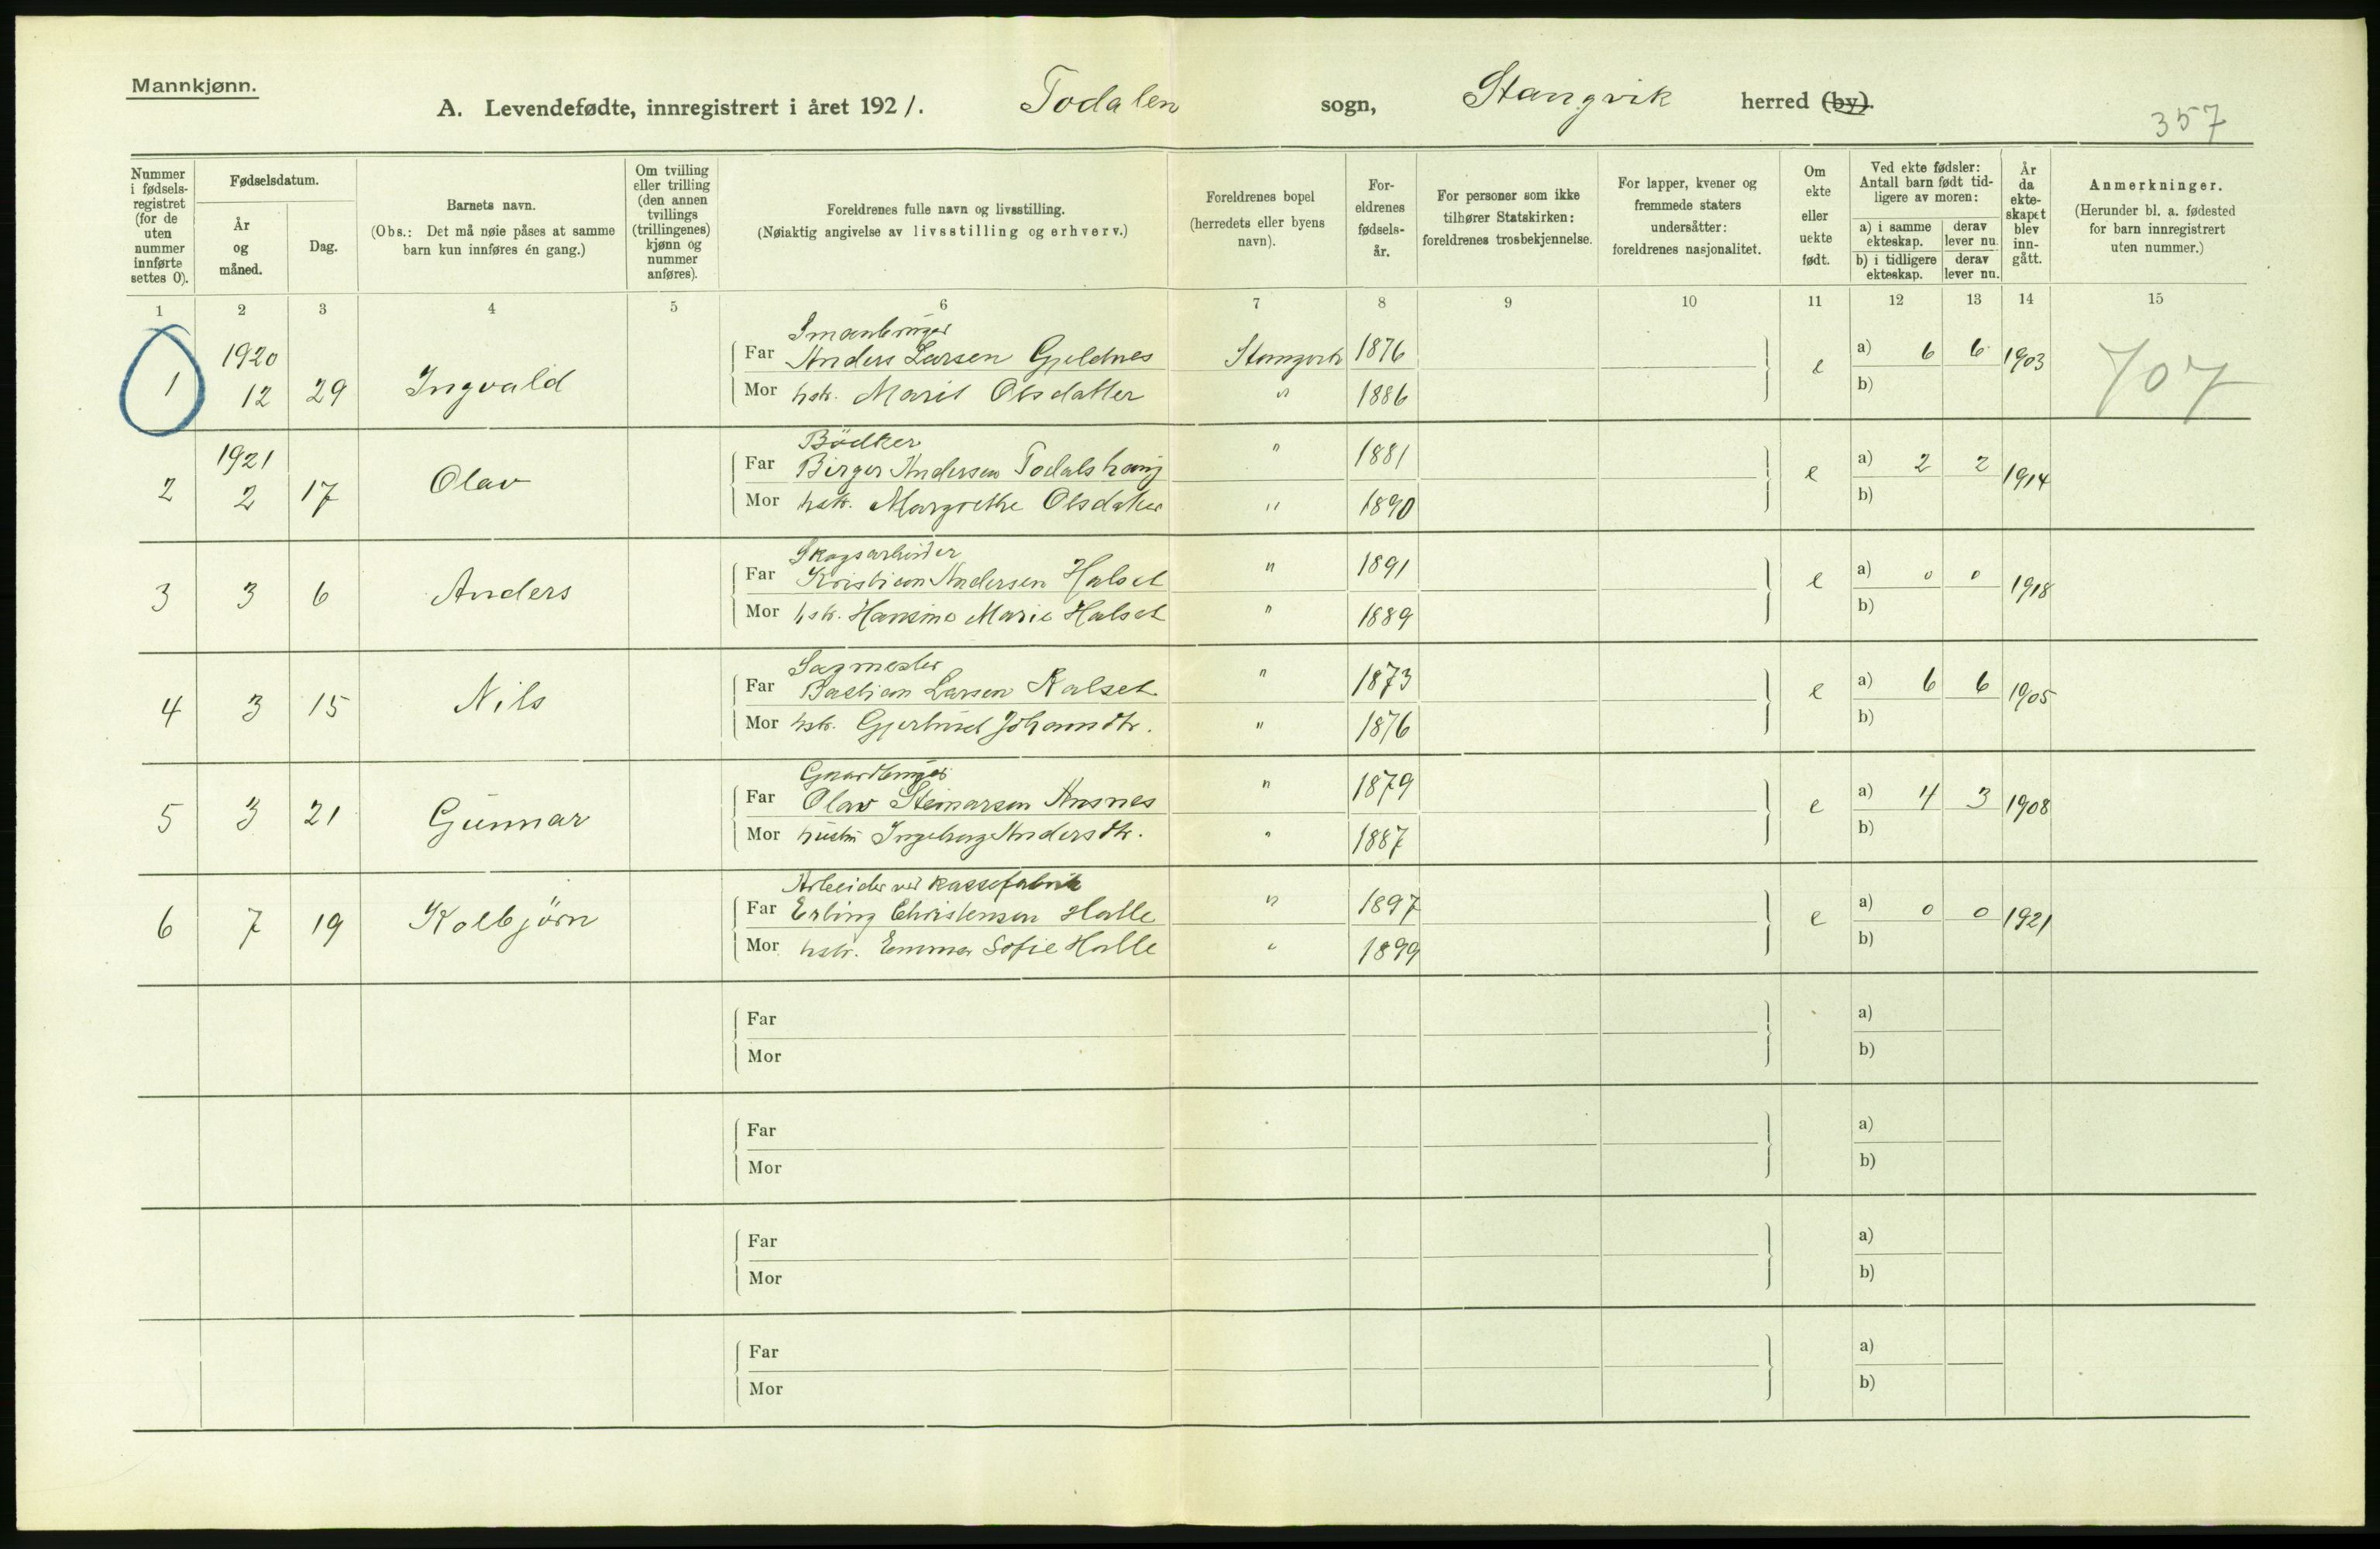 Mannkjønn.
A. Levendefødte, innregistrert i året 1921. Todalen sogn, Stangvik herred (by).
357
Nummer i fødselsregistret (for de uten nummer innførte settes 0).
Fødselsdatum.
År og måned.
Dag.
Barnets navn.
(Obs.: Det må nøie påses at samme barn kun innføres én gang.)
Om tvilling eller trilling (den annen tvillings (trillingenes) kjønn og nummer anføres).
Foreldrenes fulle navn og livsstilling.
(Nøiaktig angivelse av livsstilling og erhverv.)
Foreldrenes bopel (herredets eller byens navn).
Foreldrenes fødselsår.
For personer som ikke tilhører Statskirken: foreldrenes trosbekjennelse.
For lapper, kvener og fremmede staters undersåtter: foreldrenes nasjonalitet.
Om ekte eller uekte født.
Ved ekte fødsler: Antall barn født tidligere av moren:
a) i samme ekteskap. derav lever nu.
b) i tidligere ekteskap. derav lever nu.
År da ekteskapet blev inngått.
Anmerkninger.
(Herunder bl. a. fødested for barn innregistrert uten nummer.)
1 2 3 4 5 6 7 8 9 10 11 12 13 14 15
Småbruger
1 1920 12 29 Ingvald Far Anders Larsen Gjeldnes Stangvik 1876 e a) 6 6 1903 707
Mor hstr. Marit Olsdatter " 1886 b)
Bödker
2 1921 2 17 Olav Far Birger Andersen Todalshaug " 1881 e a) 2 2 1914
Mor hstr. Margrethe Olsdatter " 1890 b)
Skogsarbeider
3 3 6 Anders Far Kristian Andersen Halset " 1891 e a) 0 0 1918
Mor hstr. Hansine Marie Halset " 1889 b)
Sagmester
4 3 15 Nils Far Bastian Larsen Kalset " 1873 e a) 6 6 1905
Mor hstr. Gjertrud Johansdtr. " 1876 b)
Gaardbruger
5 3 21 Gunnar Far Olav Steinarsen Ansnes " 1879 e a) 4 3 1908
Mor hustru Ingeborg Andersdtr. " 1887 b)
Arbeider ved kassefabrik
6 7 19 Kolbjörn Far Erling Christensen Halle " 1897 e a) 0 0 1921
Mor hstr. Emma Sofie Halle " 1899 b)
Far a)
Mor b)
Far a)
Mor b)
Far a)
Mor b)
Far a)
Mor b)